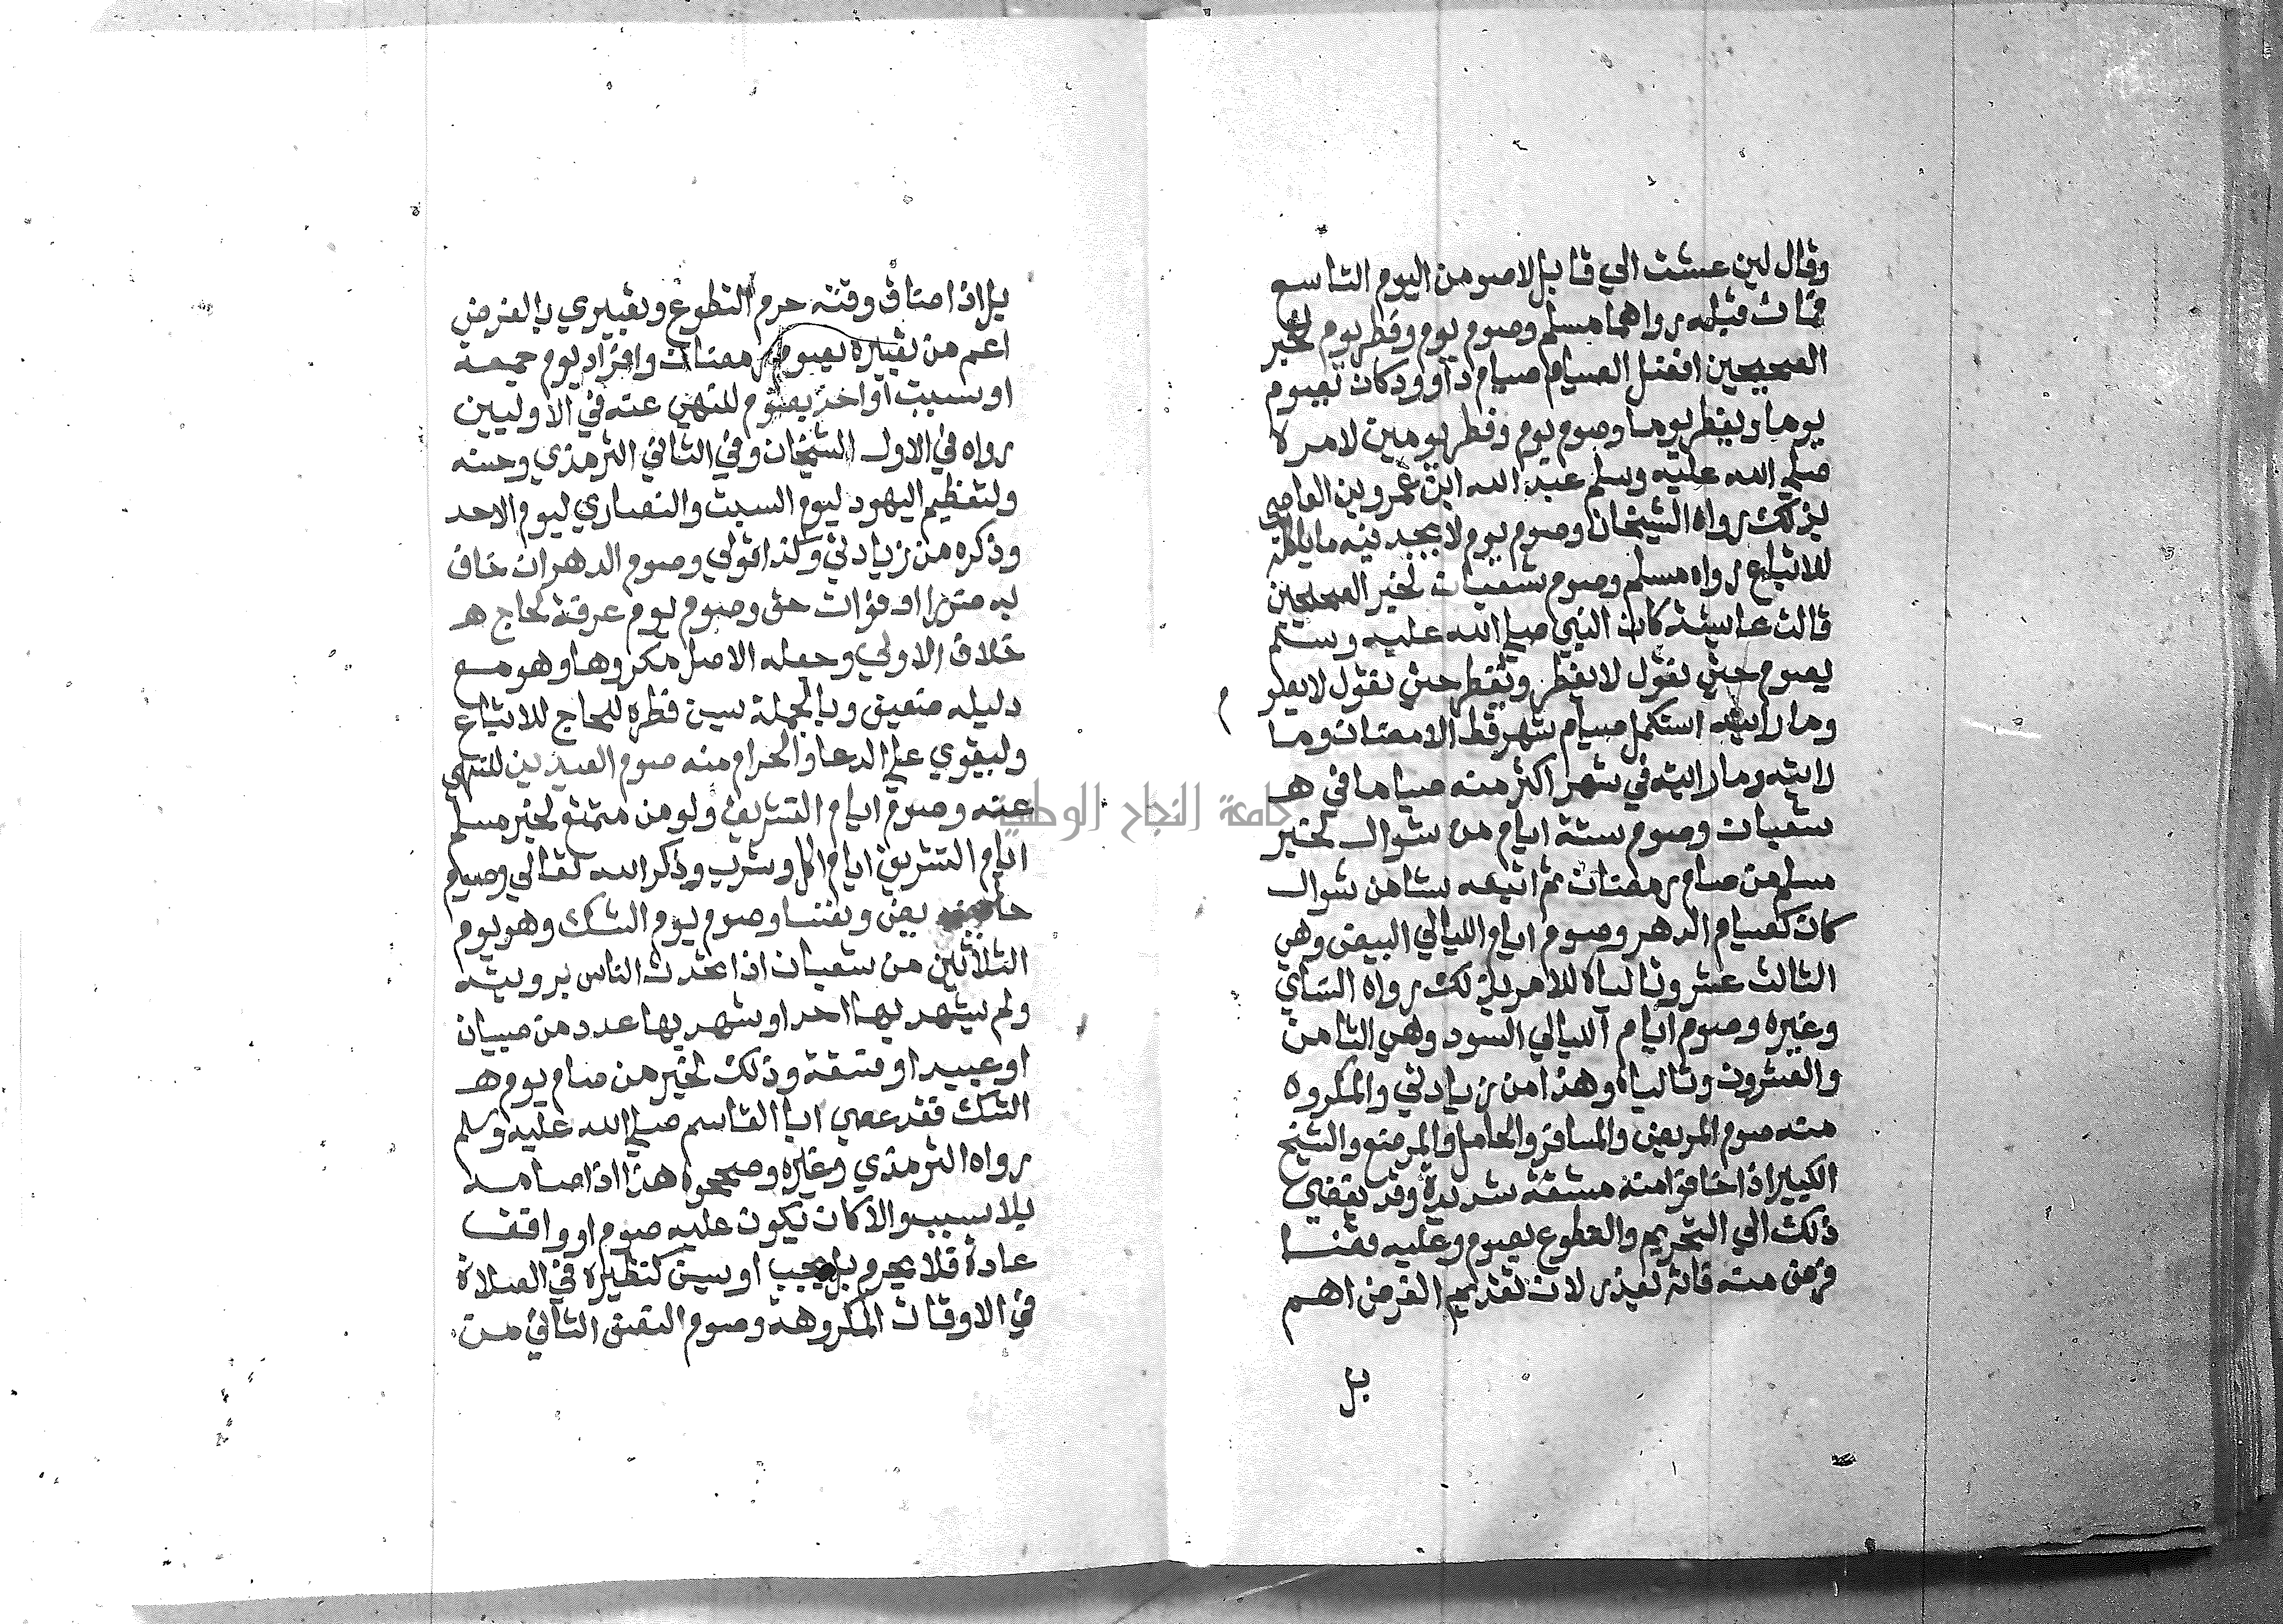 وقال لين عشت الي قابل لاصومن اليوم التاسع
فمات قبله رواهما مسلم وصوم يوم وفطر يوم لخبر
الصحيحين افضل الصيام صيام داوود كان يصوم
يوما ويفطر يوما وصوم يوم وفطر يومين لامره
صلي الله عليه وسلم عبد الله ابن عمرو بن العاصي
بذلك رواه الشيخان وصوم يوم لا يجد فيه ما ياكله
للاتباع رواه مسلم وصوم شعبان لخبر الصحيحين
قالت عايشة كان النبي صلي الله عليه وسلم
يصوم حتي نقول لا يفطر ويفطر حتي نقول لا يصو
م
وما رايته استكمل صيام شهر قط الا رمضان وما
رايته وما رايته في شهر اكثر منه صياما في هـ
شعبان وصوم ستة ايام من شوال لخبر
مسلم من صام رمضان ثم اتبعه ستا من شوال
كان كصيام الدهر وصوم ايام الليالي البيض وهي
الثالث عشر وتالياه للامر بذلك رواه النساي
وغيره وصوم ايام الليالي السود وهي الثامن
والعشرون وتالياه وهذا من زيادتي والمكروه
منه صوم المريض والمسافر والحامل والمرضع والشيخ
الكبير اذا خافوا منه مشقة شديدة وقد يفضي
ذلك الي التحريم والتطوع بصوم وعليه قضا
فرض منه فاته بعذر لان تقديم الفرض اهم
بل
بل اذا ضاق وقته حرم التطوع وتعبيري بالفرض
اعم من تعبيره بصوم رمضان وافراد يوم جمعة
او سبت او احد بصوم للنهي عنه في الاوليين
رواه في الاول الشيخان وفي الثاني الترمذي وحسنه
ولتعظيم اليهود ليوم السبت والنصاري ليوم الاحد
وذكره من زيادتي وكذا قولي وصوم الدهر ان خاف
به ضررا او فوات حق وصوم يوم عرفة لحاج هـ
خلاف الاولي وجعله الاصل مكروها وهو مع
دليله ضعيف وبالجملة يسن فطره للحاج للاتباع
وليقوي علي الدعا والحرام منه صوم العيدين للنهي
عنه وصوم ايام التشريق ولو من متمتع لخبر مسلم
ايام التشريق ايام اكل وشرب وذكر الله تعالي وصيام
حايض ونفسا وصوم يوم الشك وهو يوم
الثلاثين من شعبان اذا تحدث الناس برويته
ولم يشهد بها احد او شهد بها عدد من صبيان
او عبيد او فسقة وذلك لخبر من صام يوم هـ
الشك فقد عصي ابا القاسم صلي الله عليه وسلم
رواه الترمذي وغيره وصححوه هذا اذا صامه
بلا سبب والا كان يكون عليه صوم او وافق
عادة فلا يحرم بل يجب او يسن كنظيره في الصلاة
في الاوقات المكروهة وصوم النصف الثاني من
جامعة النجاح الوطنية